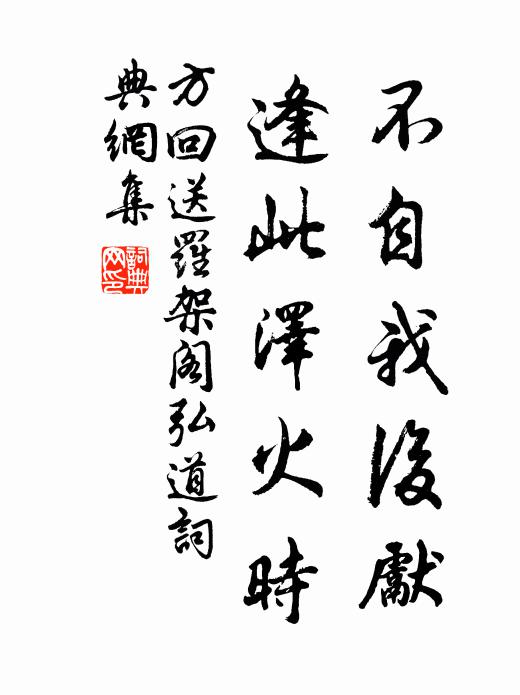 不自我後獻
逢此澤火時
方回送羅架閣弘道詞
典網集
詞典
网印